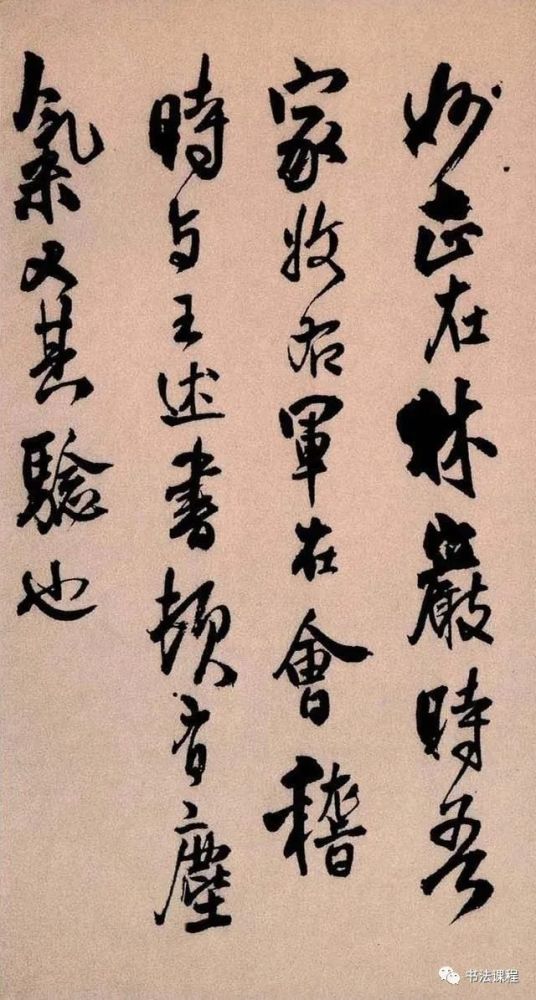 妙正在林巖時吾
家收右軍在會稽
時与王述書頓有塵
氣又其驗也
书法课程